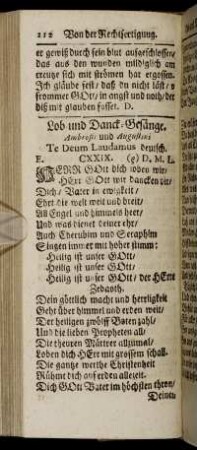 212 Von der Rechtfertigung.
er gewiß durch sein blut aufgeschlossen/
das aus den wunden mildiglich am
creutze sich mit strömen hat ergossen.
Ich gläube fest/ daß du nicht läst/
frommer GOtt/ in angst und noth/ der
diß mit glauben fasset. D.
Lob- und Danck-Gesänge.
Ambrosii und Augustini
Te Deum Laudamus deutsch.
F. CXXIX. (g) D. M. L.
HERR GOtt dich loben wir/
HErr GOtt wir dancken dir/
Dich/ Vater in ewigkeit/
Ehrt die welt weit und breit/
All Engel und himmels heer/
Und was dienet deiner ehr/
Auch Cherubim und Seraphim
Singen immer mit hoher stimm:
Heilig ist unser GOtt/
Heilig ist unser GOtt/
Heilig ist unser GOtt/ der HErr
Zebaoth.
Dein göttlich macht und herrligkeit
Geht über himmel und erden weit/
Der heiligen zwölff Boten zahl/
Und die lieben Propheten all/
Die theuren Märterer allzumal/
Loben dich HErr mit grossem schall.
Die gantze werthe Christenheit
Rühmt dich auf erden allezeit.
Dich GOtt Vater im höchsten thron/
Deinen